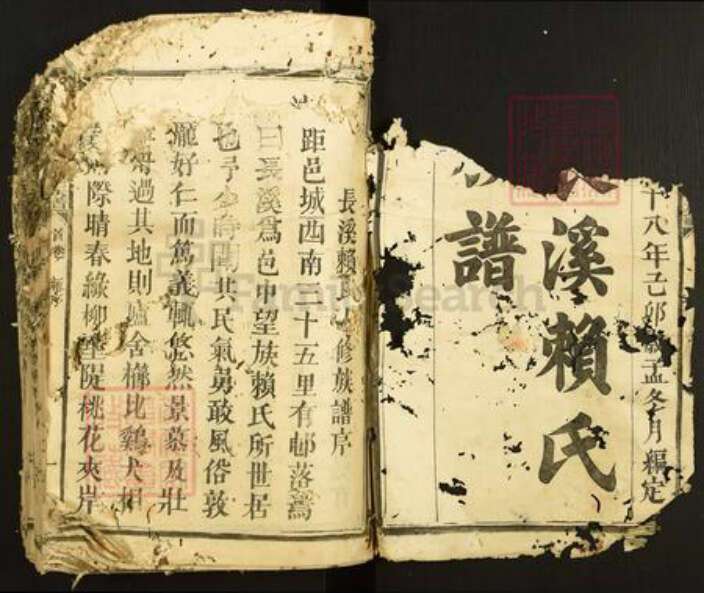 十八年己卯孟冬月編定
溪賴氏
譜
長溪賴氏修族譜序
距邑城西南二十五里有邨落焉
曰長溪為邑中望族賴氏所世居
也予少時聞其民氣勇敢風俗敦
龐好仁而篤義輒悠然景慕及壯
過其地則廬舍櫛比雞犬相
際晴春綠柳堤桃花夾岸
首卷
FamilySearch